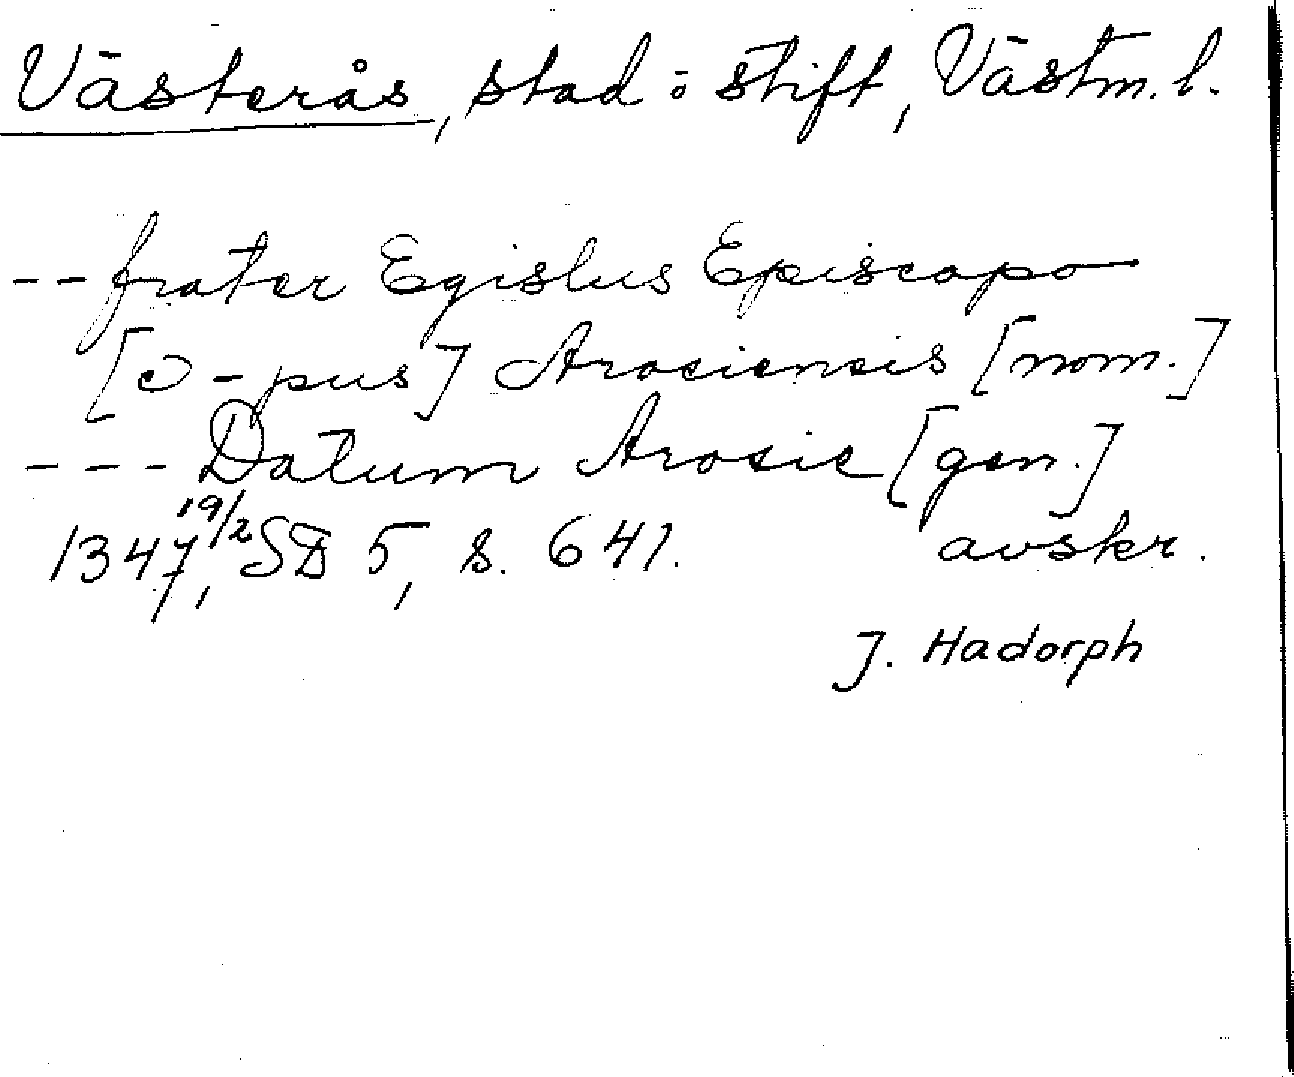 Västerås, stad o stift, Västm. l.
-- frater Egislus Episcopo
[ɔ -pus] Arosiensis [nom.]
--- Datum Arosie [gen.]
1347 19/2, SD 5, s. 641. avskr.
J. Hadorph